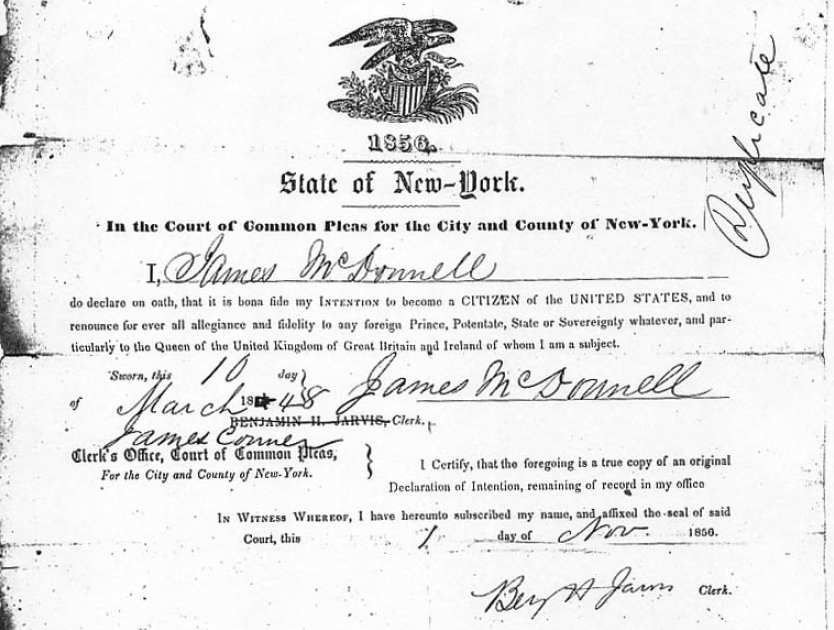 Duplicate
1856.
State of New-York.
In the Court of Common Pleas for the City and County of New-York.
I, James McDonnell
do declare on oath, that it is bona fide my INTENTION to become a CITIZEN of the UNITED STATES, and to
renounce for ever all allegiance and fidelity to any foreign Prince, Potentate, State or Sovereignty whatever, and par-
ticularly to the Queen of the United Kingdom of Great Britain and Ireland of whom I am a subject.
Sworn, this 10 day
of March 18 48 James McDonnell
BENJAMIN H. JARVIS, Clerk.
James Conner
Clerk's Office, Court of Common Pleas,
For the City and County of New-York.
I Certify, that the foregoing is a true copy of an original
Declaration of Intention, remaining of record in my office
IN WITNESS WHEREOF, I have hereunto subscribed my name, and affixed the seal of said
Court, this 1 day of Nov. 1856.
Benj H Jarvis Clerk.